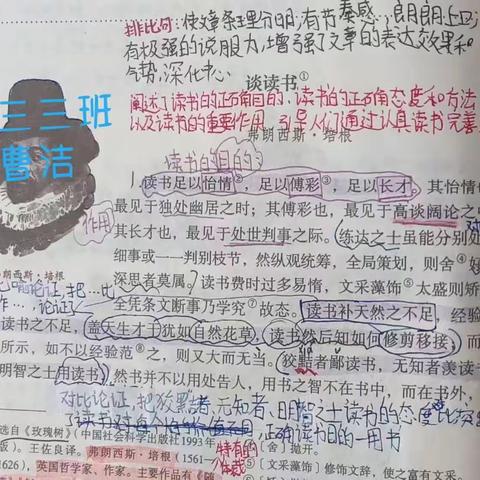 排比句：使文章条理分明，有节奏感，朗朗上口；
有极强的说服力，增强了文章的表达效果和
气势，深化中心
谈读书①
阐述了读书的正确目的，读书的正确态度和方法
以及读书的重要作用 引导人们通过认真读书完善
三三班
曹洁
弗朗西斯·培根
读书的目的：
读书足以怡情②，足以傅彩③，足以长才。其怡情也
作用
最见于独处幽居之时；其傅彩也，最见于高谈阔论之中
其长才也，最见于处世判事之际。练达之士虽能分别处
细事或一一判别枝节，然纵观统筹、全局策划，则舍④好
朗西斯·培根
深思者莫属。读书费时过多易惰，文采藻饰⑤太盛则矫
全凭条文断事乃学究⑥故态。读书补天然之不足，经验
读书之不足，盖天生才干犹如自然花草，读书然后知如何修剪移接，而
所示，如不以经验范⑧之，则又大而无当。狡黠者鄙读书，无知者羡读书
明智之士用读书，然书并不以用处告人，用书之智不在书中，而在书外，
对比论证，把狡黠者、无知者、明智之士读书的态度
正确读书目的一用书
选自《玫瑰树》（中国社会科学出版社1993年
版）。王佐良译。弗朗西斯·培根（1561—
1626），英国哲学家、作家。主要作品有《随
④〔舍〕抛开。
⑤〔文采藻饰〕修饰文辞，使之富有文采。